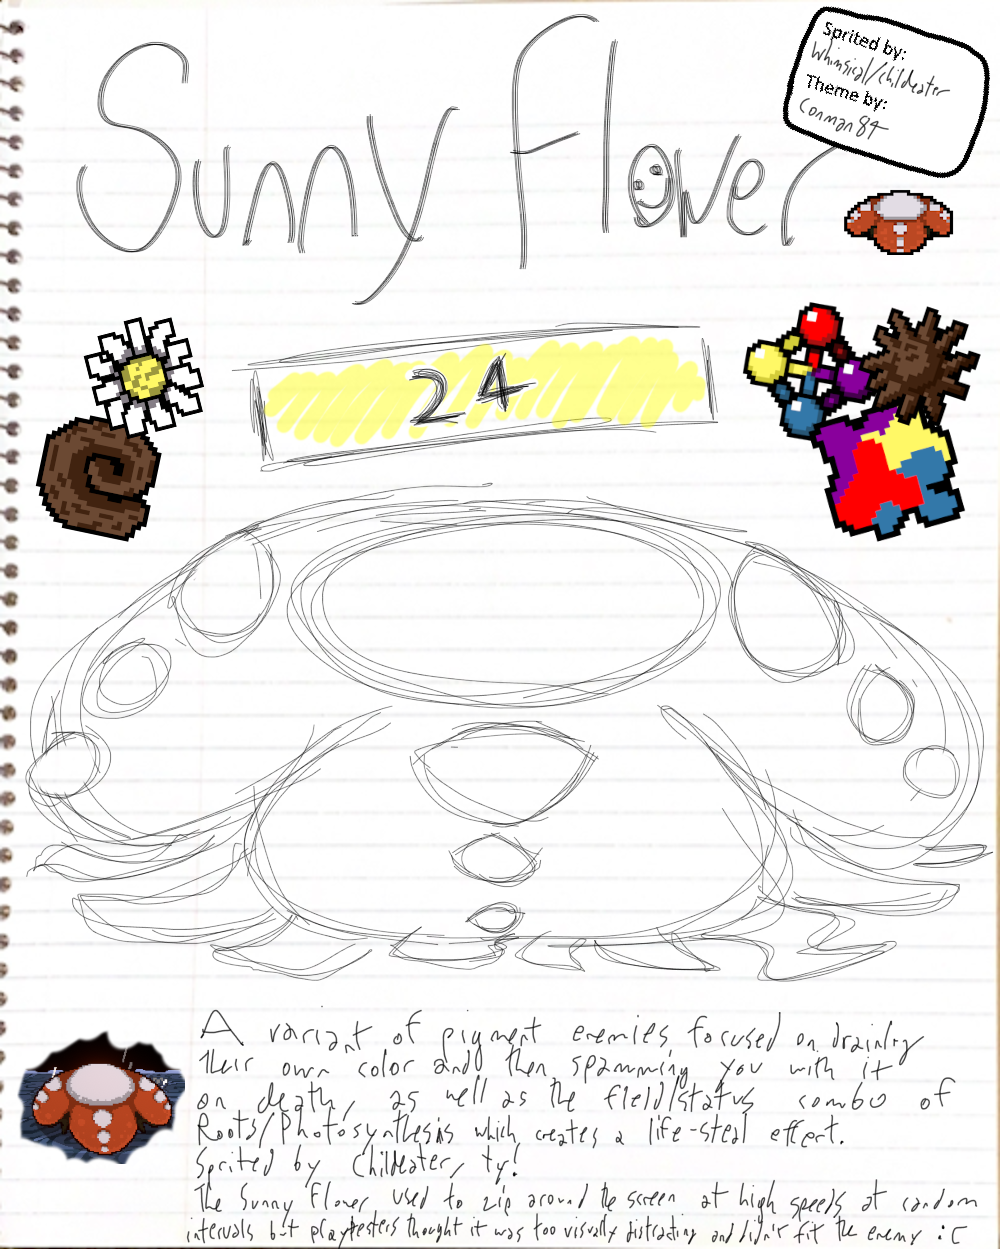 Sunny Flower
Sprited by:
Whimsical/Childeater
Theme by:
Conman84
24
A variant of pigment enemies focused on draining
their own color and then spamming you with it
on death, as well as the field/status combo of
Roots/Photosynthesis which creates a life-steal effect.
Sprited by Childeater, ty!
The Sunny Flower used to zip around the screen at high speeds at random
intervals but playtesters thought it was too visually distracting and didn't fit the enemy :C